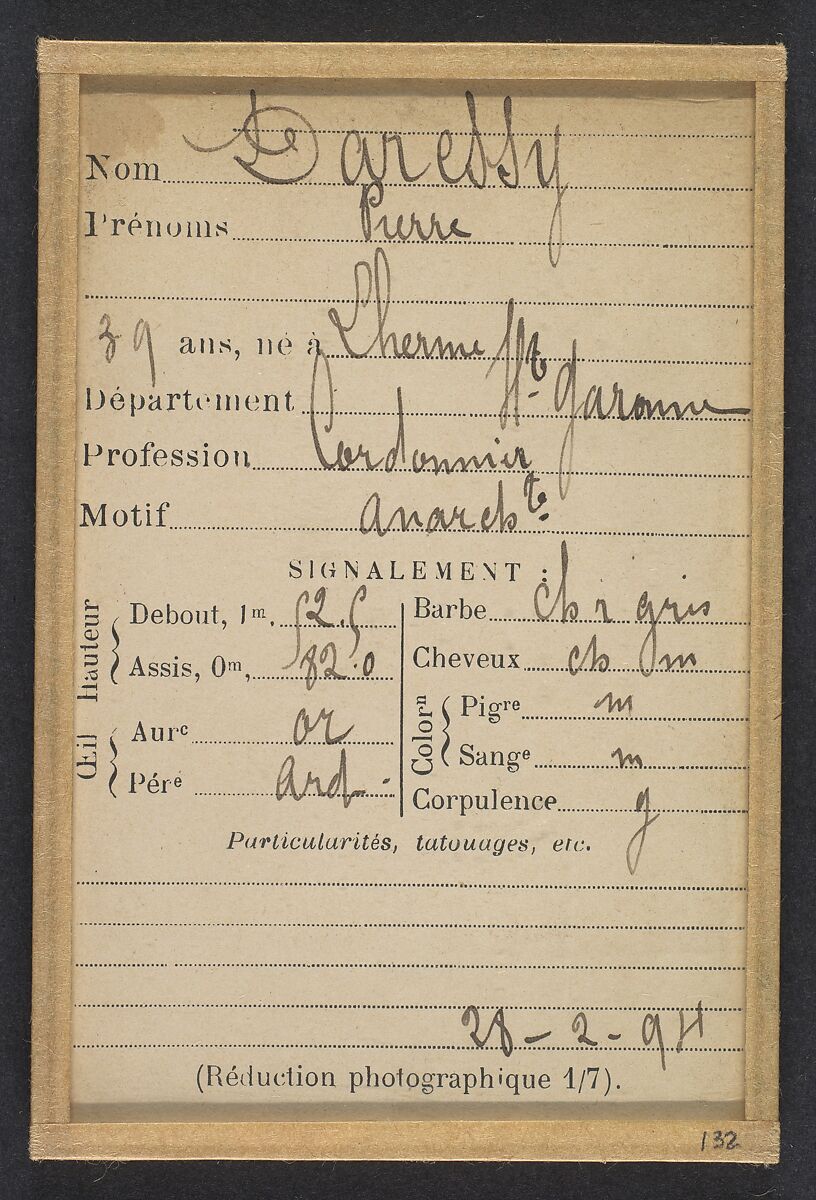 Nom Daressy
Prénoms Pierre
39 ans, né à Lherme
Département Hte Garonne
Profession Cordonnier
Motif anarchte
SIGNALEMENT :
Hauteur
Debout, 1m. 52.5
Assis, 0m, 82.0
Œil
Aure or
Pére ard
Barbe ch r gris
Cheveux ch m
Colorn
Pigre m
Sange m
Corpulence g
Particularités, tatouages, etc.
28-2-94
(Réduction photographique 1/7).
132